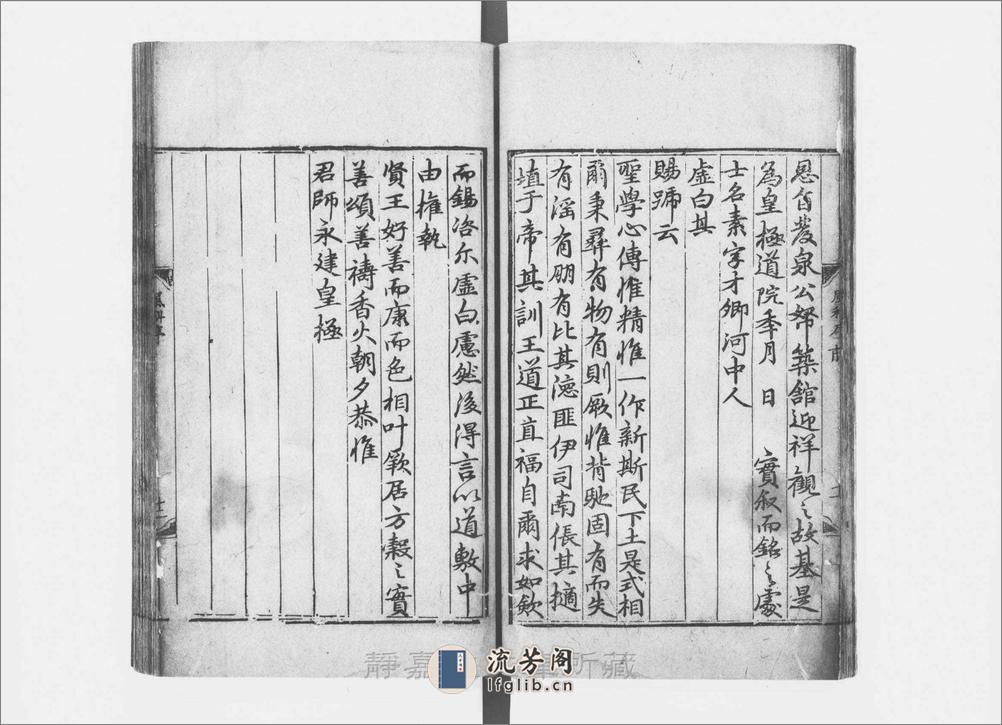 思旨發泉公帑築館迎祥觀之故基是
為皇極道院季月日實叙而銘之處
士名素字才卿河中人
虛白其
賜號云
聖學心傳惟精惟一作新斯民下土是式相
爾秉彞有物有則厥惟背馳固有而失
有淫有朋有比其德匪伊司南倀其擿
埴于帝其訓王道正直福自爾求如斂
而錫咨尔虛白慮然後得言以道敷中
由權執
賢王好善而康而色相叶厥居方穀之實
善頌善禱香火朝夕恭惟
君師永建皇極
靜嘉 所藏
流芳阁
lfglib.cn